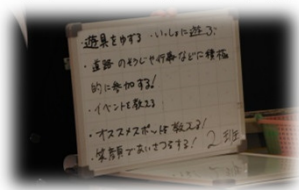 ・遊具をふやする ・いっしょに遊ぶ
・道路のそうじや行事などに積極
的に参加する!
・イベントを教える
・オススメスポットを教える!
・笑顔であいさつをする! 2班